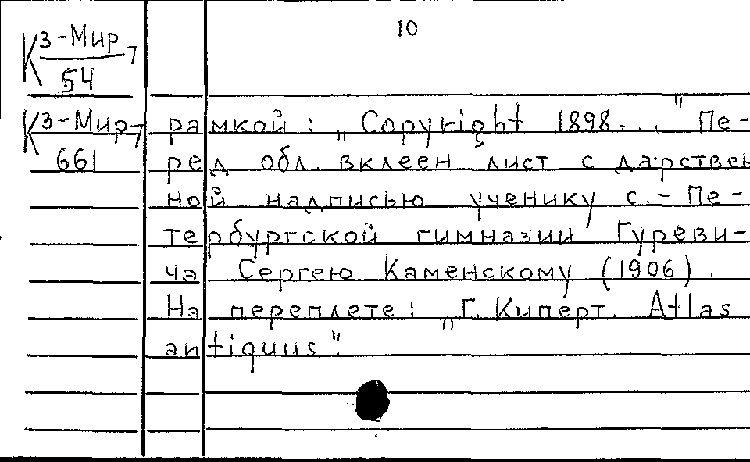 10
К 3-Мир 7
54
К 3-Мир-7
661
рамкой: „Copyright 1898..." Пе-
ред обл. вклеен лист с дарствен
ной надписью ученику с.-Пе-
тербургской гимназии Гуреви-
ча Сергею Каменскому (1906).
На переплете: „Г. Киперт. Atlas
antiquus".